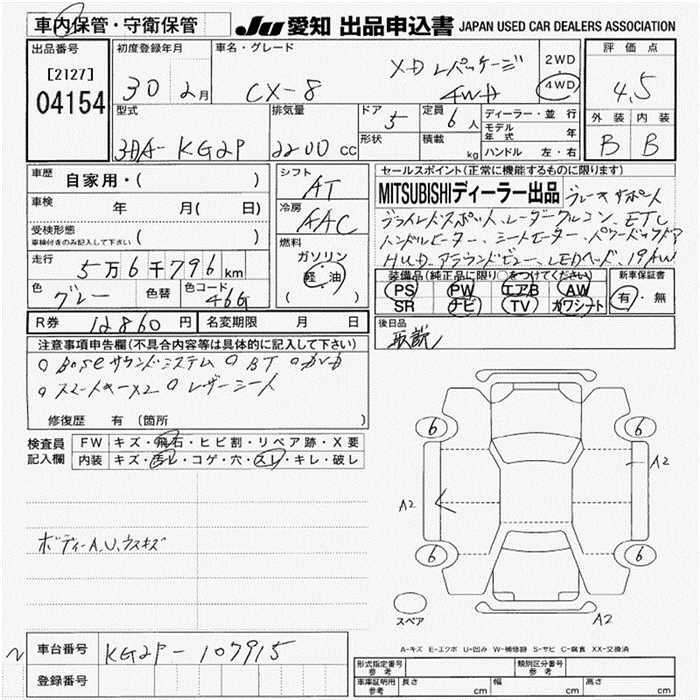 車内保管・守衛保管
JU 愛知 出品申込書 JAPAN USED CAR DEALERS ASSOCIATION
出品番号 初度登録年月 車名・グレード 2WD 評価点
[2127] 30 2月 CX-8 XD Lパッケージ 4WD 4WD 4.5
04154
型式 排気量 ドア 定員 ディーラー・並行 外装 内装
3DA- KG2P 2200 cc 5 6人 モデル年式 年 B B
形状 積載 kg ハンドル 左・右
車歴 自家用・( ) シフト AT セールスポイント(正常に機能するものに限ります)
車検 年 月( 日) 冷房 AAC MITSUBISHIディーラー出品 ブレーキサポート
受検形態 ブラインドスポット、レーダークルコン、ETC
車検付きのみ記入して下さい ( ) 燃料 ハンドルヒーター、シートヒーター、パワーバックドア
ガソリン HUD、アラウンドビュー、LEDヘッド、19AW
走行 5万6千796km 軽・油
( ) 装備品(純正品に限り○をつけてください) 新車保証書
色 グレー 色替 色コード 46G PS PW エアB AW 有・無
SR ナビ TV カワシート
R券 12860円 名変期限 月 日 後日品
取説
注意事項申告欄(不具合内容等は具体的に記入して下さい)
○ Boseサウンドシステム ○ BT ○ DVD
○ スマートキー×2 ○ レザーシート
修復歴 有 (箇所 )
検査員 FW キズ・飛石・ヒビ割・リペア跡・X要
記入欄 内装 キズ・汚レ・コゲ・穴・スレ・キレ・破レ
6 6
A2
A2
ボディーA,U,ウスキズ
6 6
スペア A2
A-キズ E-エクボ U-凹み W-補修跡 S-サビ C-腐食 XX-交換済
車台番号 KG2P-107915
登録番号
形式指定番号 参考 類別区分番号 参考
車庫証明用 参考 長さ cm 幅 cm 高さ cm